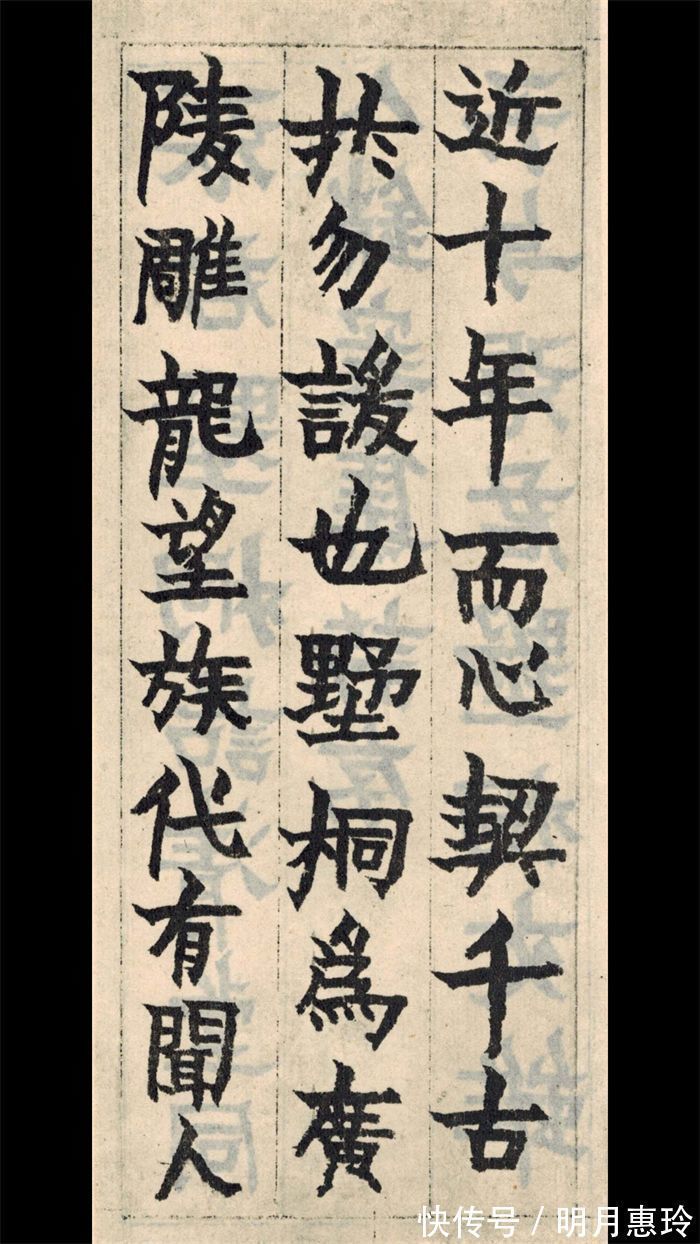 近十年而心契千古
共勿諼也墅桐為廣
陵雕龍望族代有聞人
快传号/明月惠玲